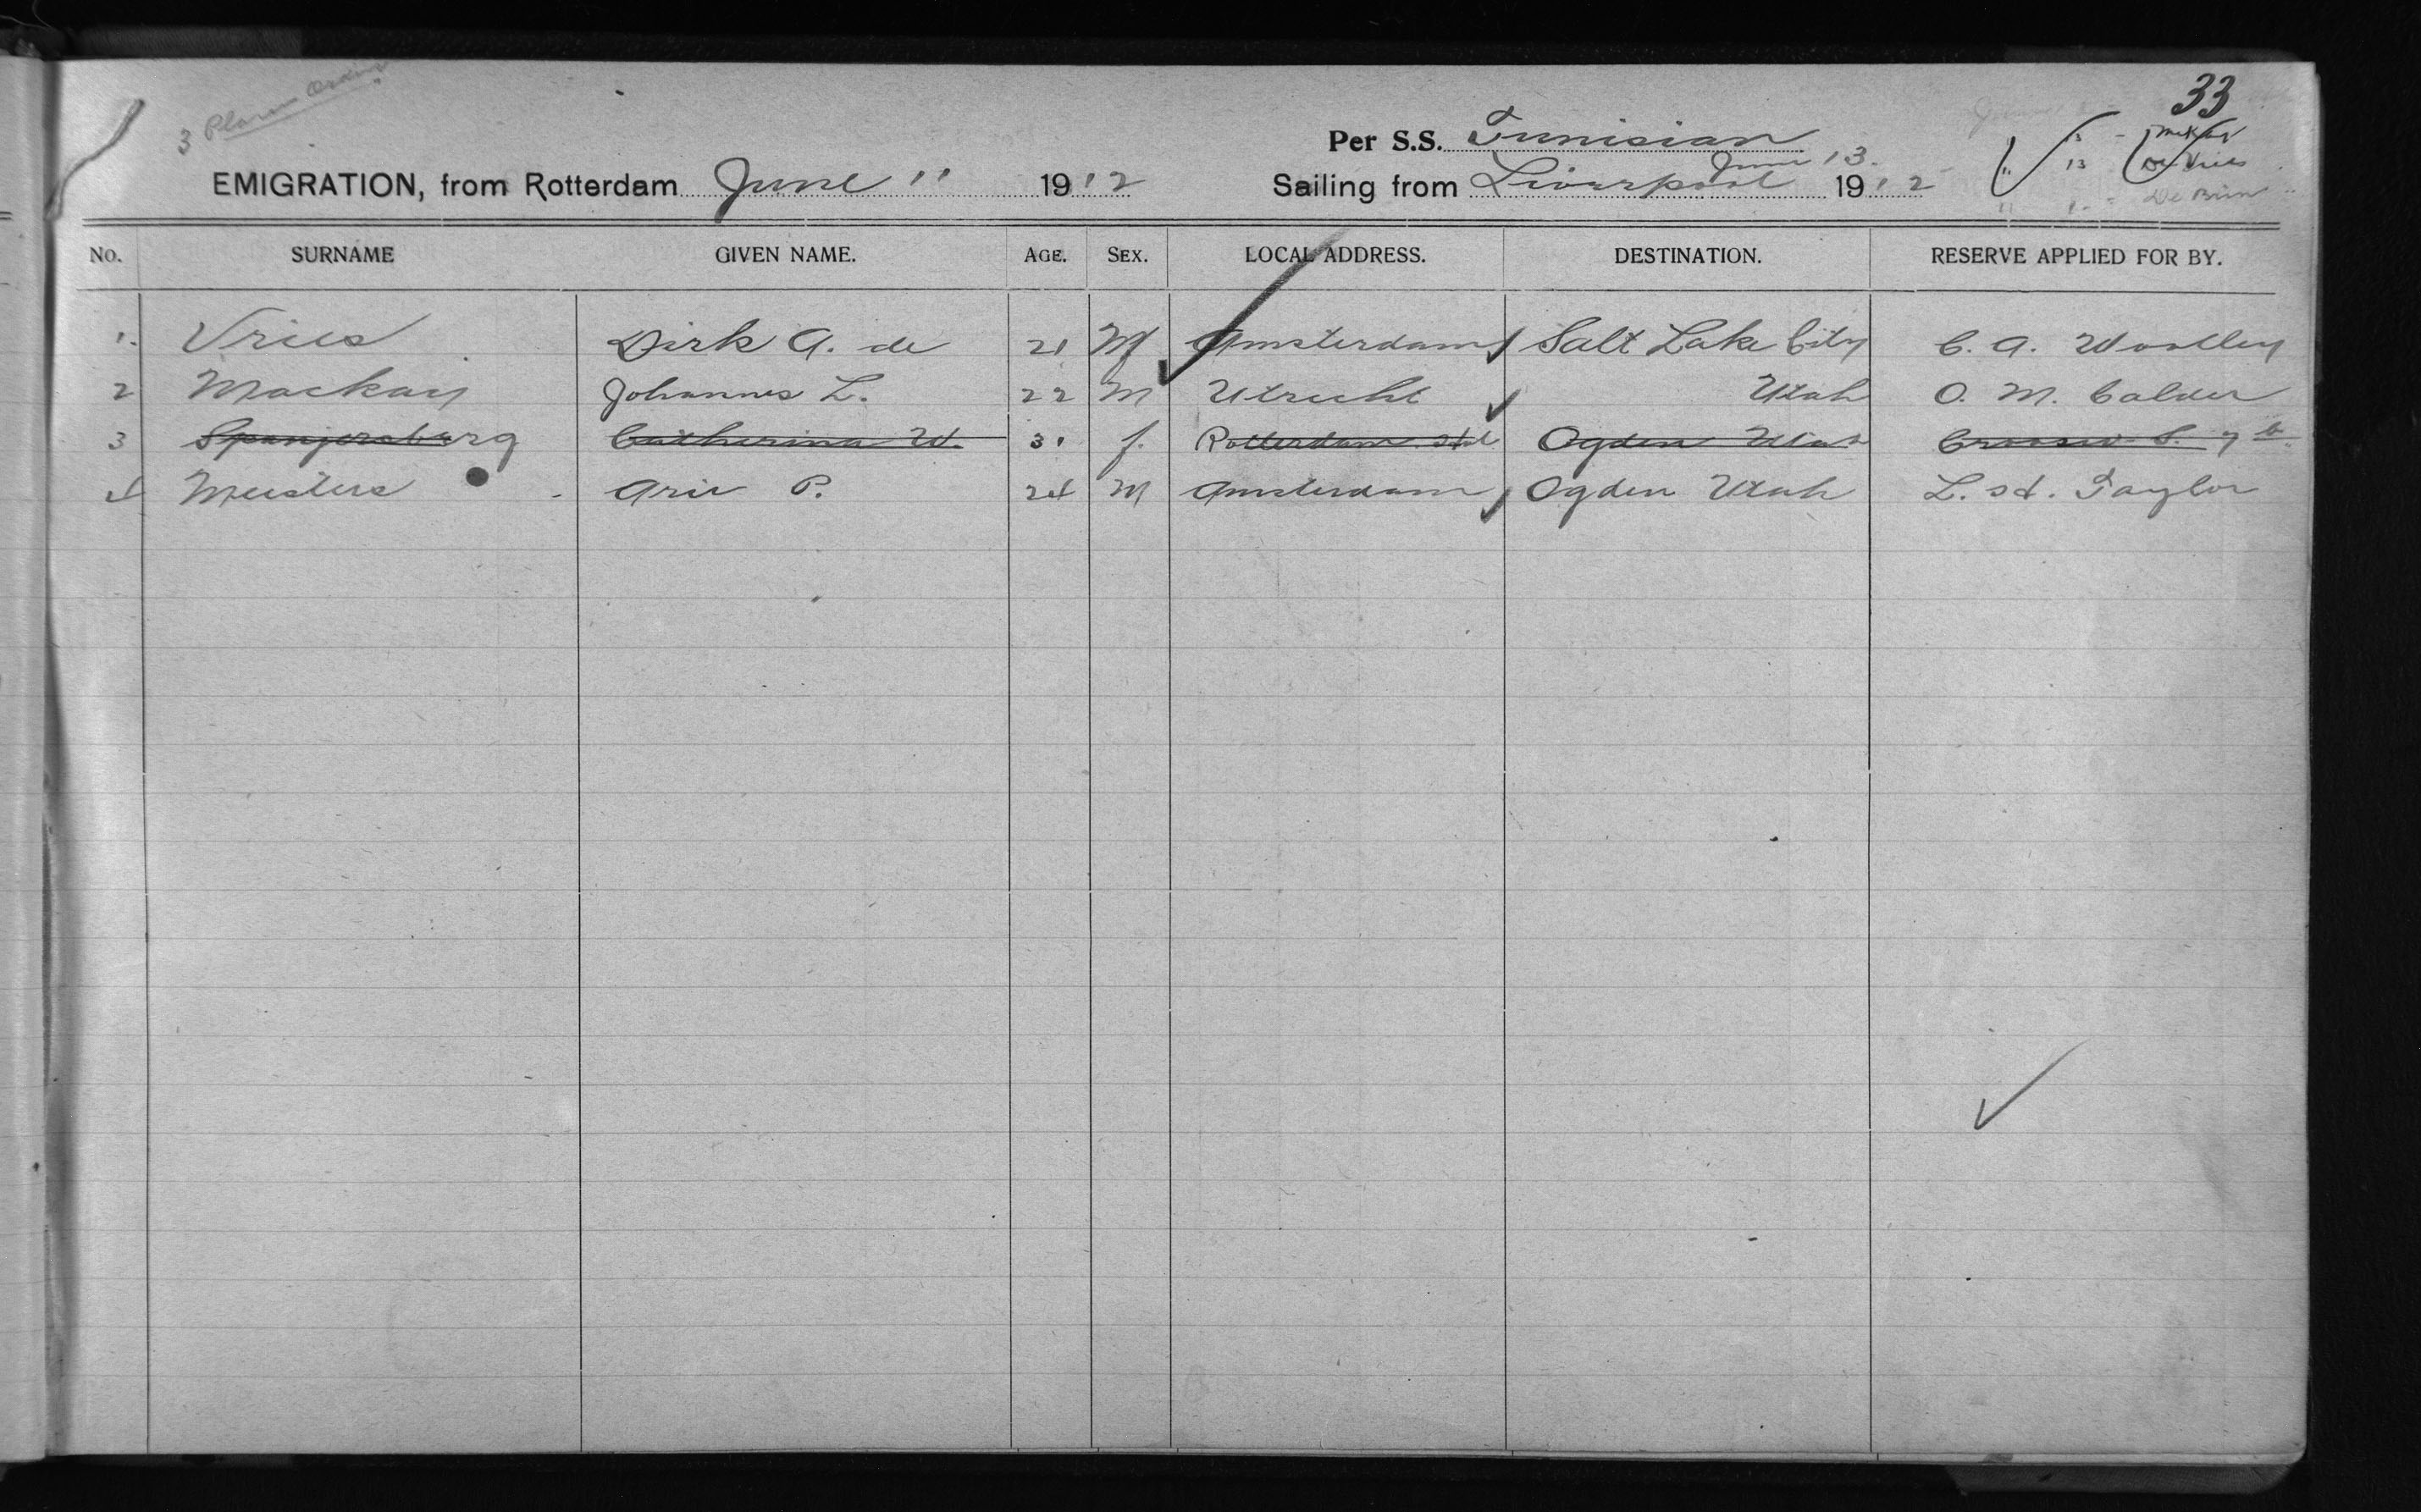 33
3
Per S.S. Tunisian
June 13.
EMIGRATION, from Rotterdam June 11 1912 Sailing from Liverpool 1912
13 De Vries
De Brün
No. SURNAME GIVEN NAME. AGE. SEX. LOCAL ADDRESS. DESTINATION. RESERVE APPLIED FOR BY.
1. Vries Dirk A. de 21 M Amsterdam Salt Lake City C. A. Woolley
2 Mackay Johannes L. 22 M Utrecht Utah O. M. Calder
3 Spanjersberg Catherina W. 31 f. Rotterdam Ogden Utah
4 Meisters Arie P. 24 M Amsterdam Ogden Utah L. H. Taylor